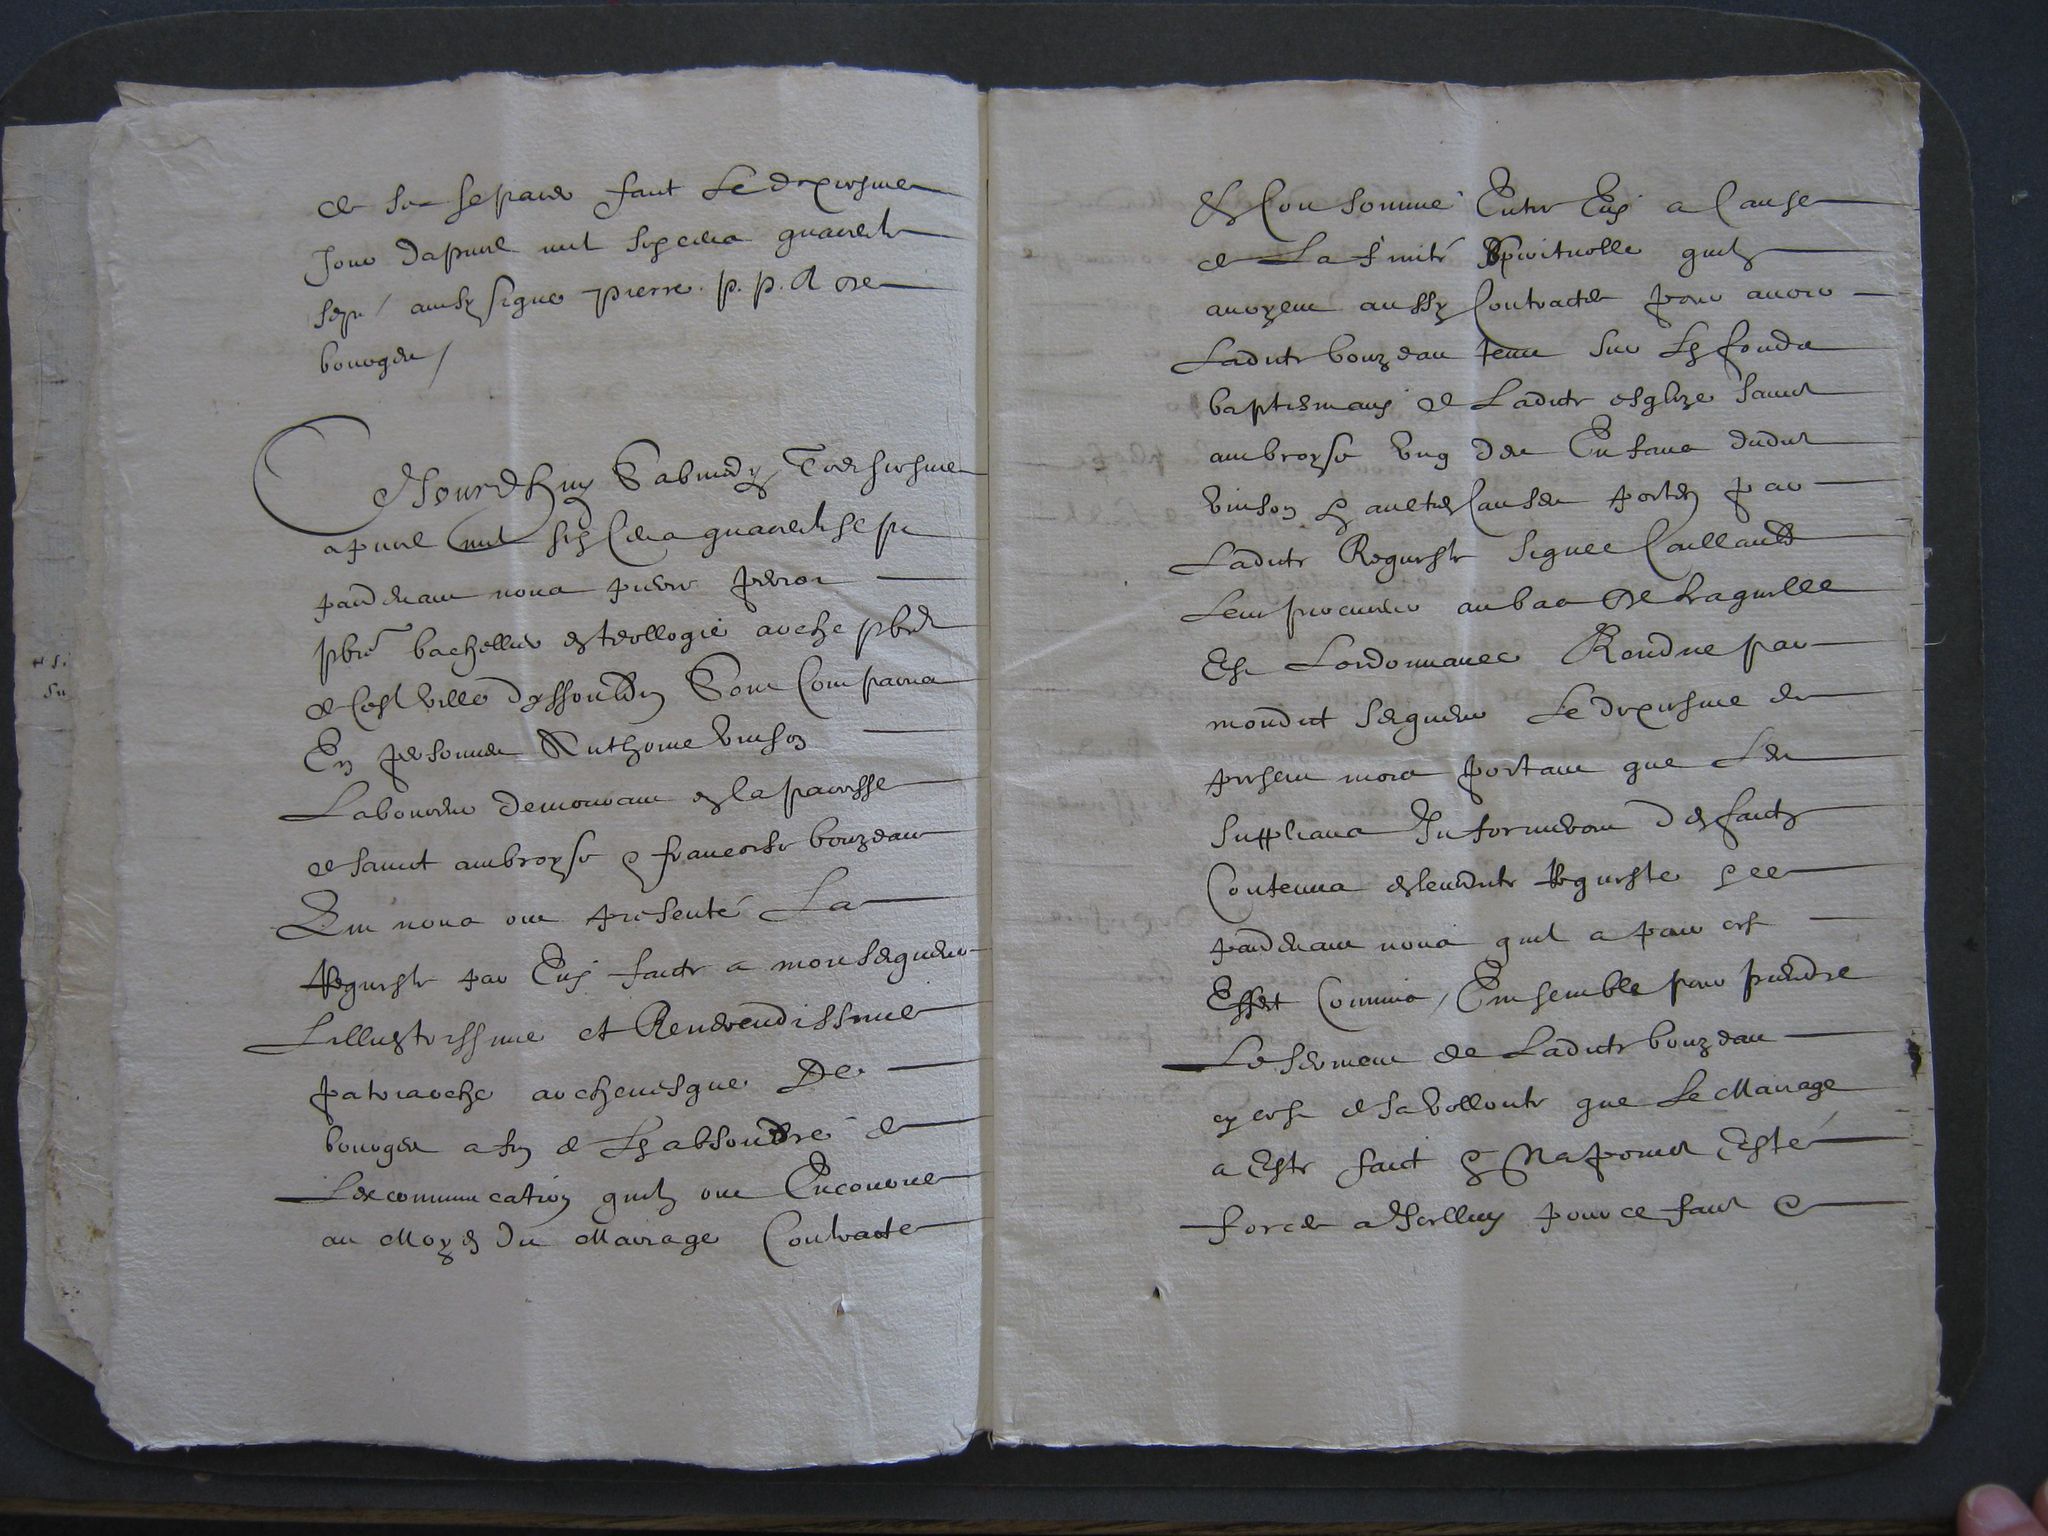 de se separer faict Le dixiesme
Jour dapvril mil six cens quarente
sept ainsy signe pierre p. p. A de
bourges /
Cejourdhuy Sabmedy Treisiesme
apvril mil six Cens quarente sept
pardevant nous pierre
pbre bachellier en teollogie archepbre
de Ceste ville dyssouldun Sont Comparus
En personnes Anthoine vinson
Laboureur demourant en la parroisse
de sainct ambroyse & francoise bouzeau
Qui nous ont presenté La
Requeste par Eux faicte a monseigneur
Lillustrissime et Reverendissime
patriarche archevesque De
bourges afin de Les absoudre de
Lexcommunication quilz ont Encourue
au Moyen du Mariage Contracte
et Consommé Entre Eux a Cause
de Lafinité Spirituelle quilz
avoyent aussy Contractee pour avoir
Ladicte bouzeau tenu sur Les fonds
baptismaux de Ladicte esglize sainct
ambroyse ung des Enfans dudict
vinson & aultres Causes portes par
Ladicte Requeste signee Caillault
Leur procureur au bas de Laquelle
Est Lordonnance Rendue par
mondict seigneur Le dixiesme du
present mois portant que Les
suppliants Informeront des faictz
Contenus en leurdicte Requeste
pardevant nous quil a pour cest
Effect Commis / Ensemble pour prendre
Le serment de Ladicte bouzeau
sy cest de sa vollonte que Le Mariage
a Este faict & Na poinct Esté
forcee a Icelluy pour ce faict &